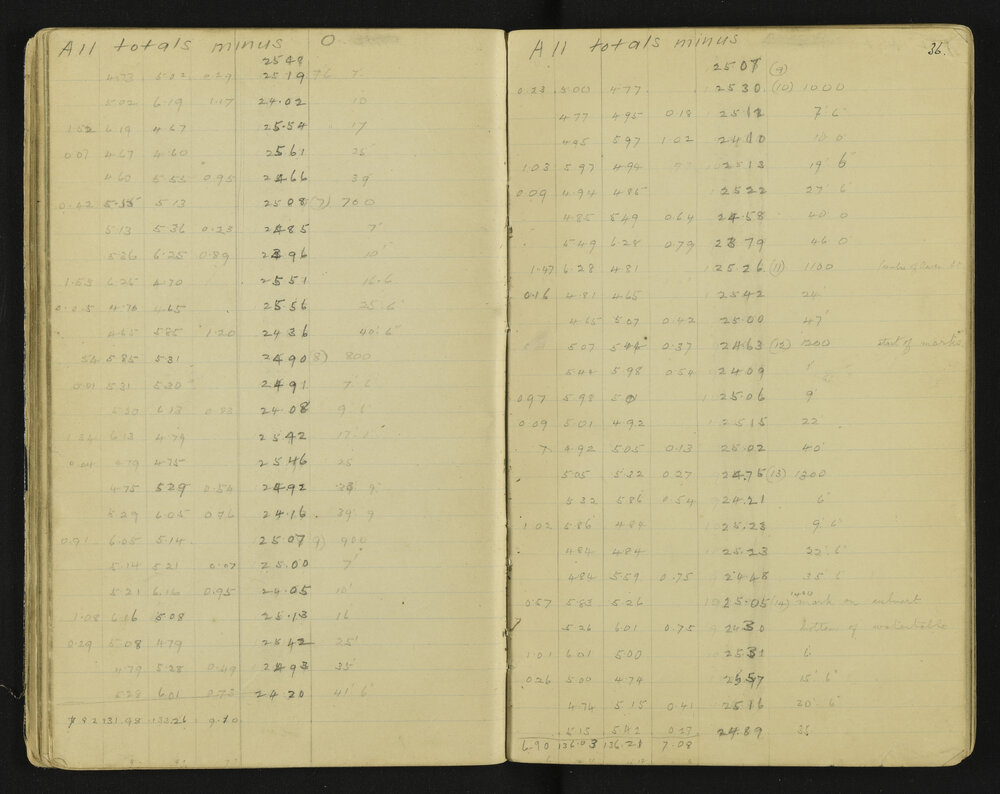 All totals minus 0
25 48
4.73 5.02 0.29 25 19 76 7'
5.02 6.19 1.17 24.02 10
1.52 6.19 4.67 25.54 17
0.07 4.67 4.60 25.61 25'
4.60 5.55 0.95 24.66 39'
0.42 5.55 5.13 25 08 (7) 700
5.13 5.36 0.28 24.85 7'
5.36 6.25 0.89 23.96 10'
1.55 6.25 4.70 25.51 16.6
4.70 4.65 25.56 25.6
4.65 5.85 1.20 24.36 40' 6"
54 5.85 5.31 24.90 (8) 800
0.01 5.31 5.30 24.91 7' 6
5.30 6.13 0.83 24.08 9' 6"
1.34 6.13 4.79 25.42 17
0.04 4.79 4.75 25.46 25
4.75 5.29 0.54 24.92 9"
5.29 6.05 0.76 24.16 39' 9
0.91 6.05 5.14 25.07 (9) 900
5.14 5.21 0.07 25.00 7'
5.21 6.16 0.95 24.05 10'
1.08 6.16 5.08 25.13 16
0.29 5.08 4.79 25.42 25'
4.79 5.28 0.49 24.93 35'
5.28 6.01 0.73 24.20 41' 6"
7.82 131.98 133.26 9.10
All totals minus
36.
25 07 (9)
0.23 5.00 4.77 25 30 (10) 1000
4.77 4.95 0.18 25 12 7' 6"
4.95 5.97 1.02 24 10 10 0
1.03 5.97 4.94 25 13 19' 6
0.09 4.94 4.85 25 22 27' 6
4.85 5.49 0.64 24.58 40' 0
5.49 6.28 0.79 23 79 46 0"
1.47 6.28 4.81 25.26 (11) 1100
0.16 4.81 4.65 25.42 24'
4.65 5.07 0.42 25.00 47'
5.07 5.44 0.37 24.63 (12) 1200 start of marks
5.44 5.98 0.54 24.09
0.97 5.98 5.01 25.06 9'
0.09 5.01 4.92 25 15 22'
4.92 5.05 0.13 25.02 40'
5.05 5.32 0.27 24.75 (13) 1300
5.32 5.86 0.54 24.21 6'
1.02 5.86 4.84 25.23 9' 6"
4.84 4.84 25.23 6"
4.84 5.59 0.75 24.48 35' 6
0.57 5.83 5.26 25.05 (14) 1400 mark on culvert
5.26 6.01 0.75 24 30 bottom of watertable
1.01 6.01 5.00 25 31 6
0.26 5.00 4.74 25 57 15' 6"
4.74 5.15 0.41 25 16 20' 6"
5.15 5.42 0.27 24.89 35
6.90 136.03 136.21 7.08